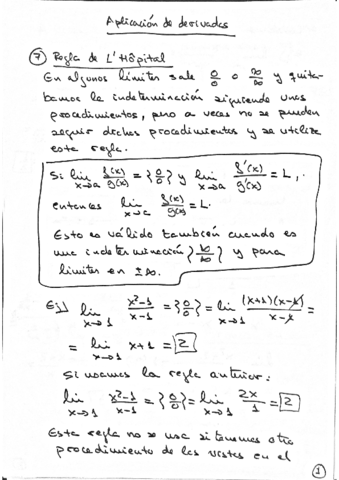 Aplicación de derivadas
⑦ Regla de L'Hôpital
En algunos límites sale 0/0 o ∞/∞ y quitá-
bamos la indeterminación siguiendo unos
procedimientos, pero a veces no se pueden
seguir dichos procedimientos y se utiliza
esta regla.
Si lim x→a f(x)/g(x) = {0/0} y lim x→a f'(x)/g'(x) = L,
entonces lim x→a f(x)/g(x) = L.
Esto es válido también cuando es
una indeterminación {∞/∞} y para
límites en ±∞.
Ej) lim x→1 x²-1/x-1 = {0/0} = lim x→1 (x+1)(x-1)/x-1 =
= lim x→1 x+1 = 2
Si usamos la regla anterior:
lim x→1 x²-1/x-1 = {0/0} = lim x→1 2x/1 = 2
Esta regla no se usa si tenemos otro
procedimiento de los vistos en el
①